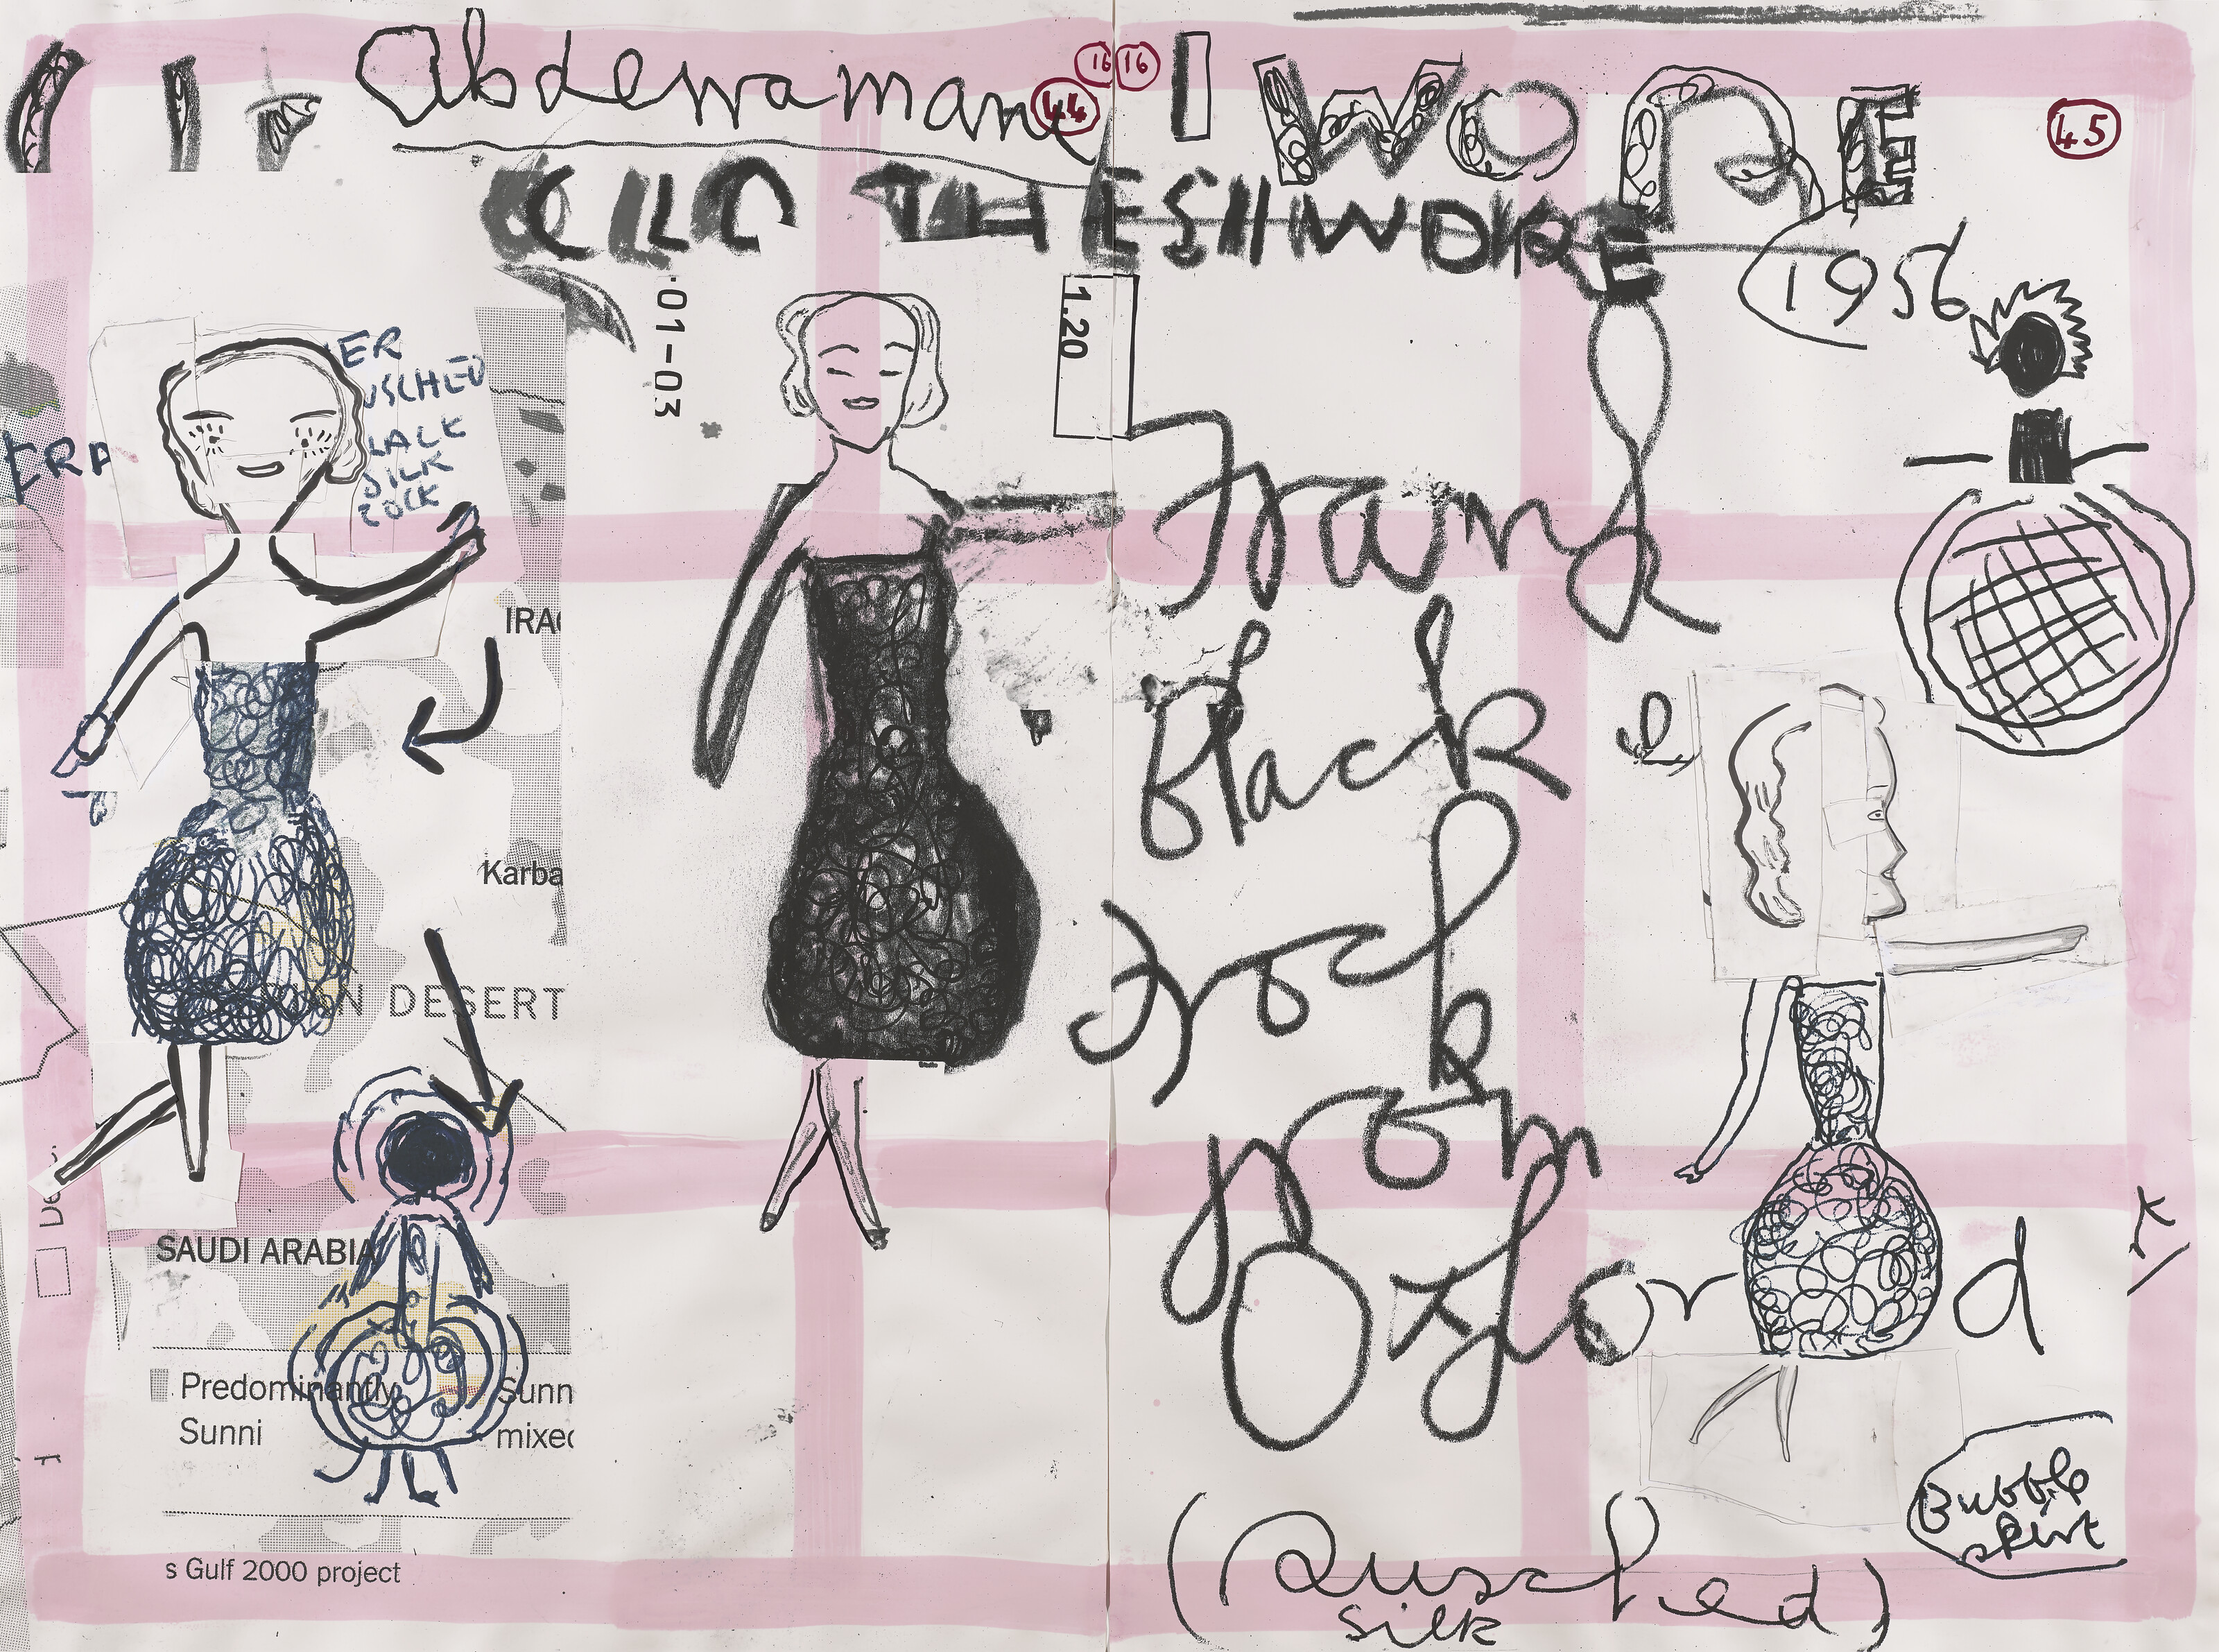 abderramane
16
16
44
I WORE
45
CLO THES I WORE
1956
01-03
1.20
ER
USCHED
LACK
SILK
ROCK
ERA
IRAQ
Karba
DESERT
SAUDI ARABIA
Predominantly
Sunni
Sunn
mixed
s Gulf 2000 project
Frand
black
frock
from
Oxford
(Rusched)
silk
Bubble
skirt